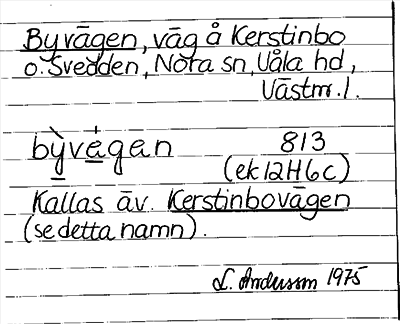 Byvägen, väg å Kerstinbo
o. Svedden, Nora sn, Våla hd,
Västm. l.
bỳvá̱gan 813
(ek 12H6c)
Kallas äv. Kerstinbovägen
(se detta namn).
L. Andersson 1975